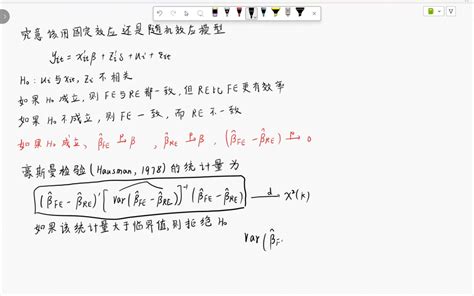 究竟该用固定效应还是随机效应模型
y_it = x'_it β + z'_i δ + u_i + ε_it
H₀：u_i 与 x_it, z_i 不相关
如果 H₀ 成立，则 FE 与 RE 都一致，但 RE 比 FE 更有效率
如果 H₀ 不成立，则 FE 一致，而 RE 不一致
如果 H₀ 成立，β̂_FE →p β ，β̂_RE →p β ，(β̂_FE − β̂_RE) →p 0
豪斯曼检验 (Hausman, 1978) 的统计量为
(β̂_FE − β̂_RE)' [Var(β̂_FE − β̂_RE)^]⁻¹ (β̂_FE − β̂_RE) →d χ²(k)
如果该统计量大于临界值，则拒绝 H₀
Var(β̂_F